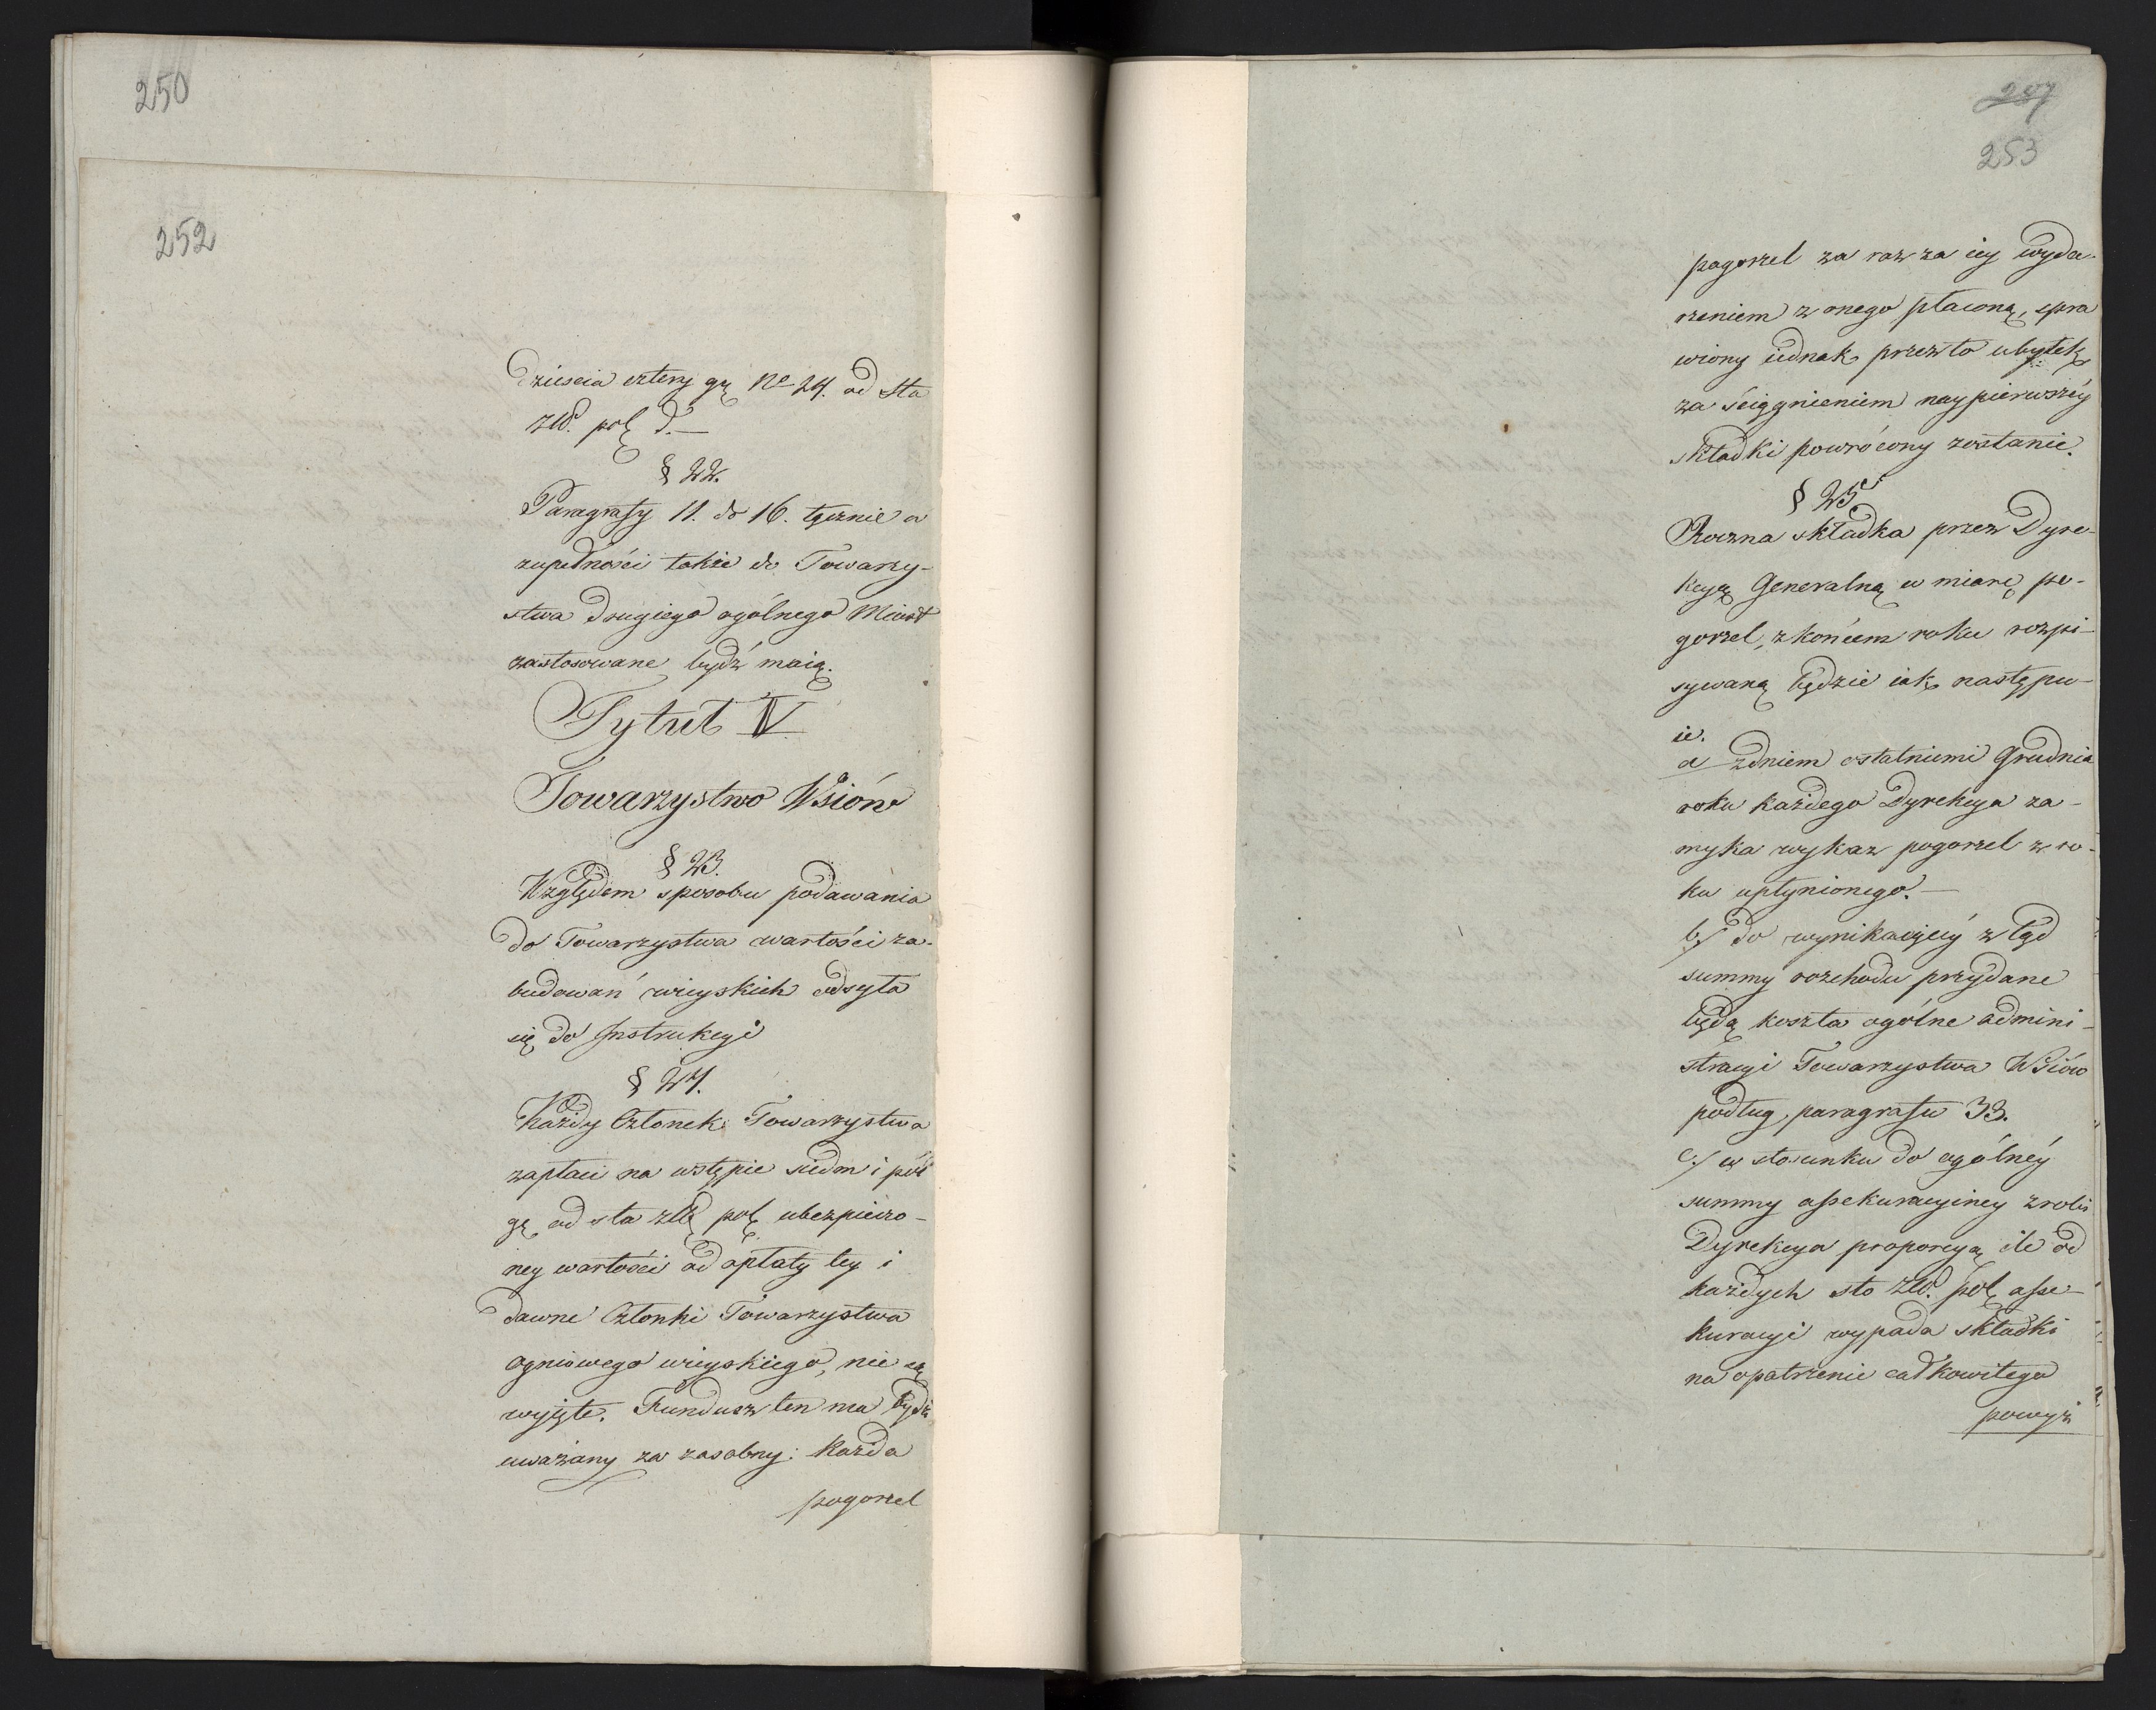 250
252
dzieścia cztery gr. No 24. od sta
zło. pol. d.—
§ 22.
Paragrafy 11. do 16. łącznie a
zupełności także do Towarzy-
stwa drugiego ogólnego Miast
zastosowane bydź maią.
Tytuł V
Towarzystwo Wsiów
§ 23.
Względem sposobu podawania
do Towarzystwa wartości za-
budowań wieyskich odsyła
się do Instrukcyi
§ 24.
Każdy Członek Towarzystwa
zapłaci na wstępie siedm i pół
gr. od sta złp. pol. ubezpieczo-
ney wartości od opłaty tey i
dawne Członki Towarzystwa
Ogniowego wieyskiego, nie są
wyięte. Fundusz ten ma bydź
uważany za zasobny: każda
pogorzel
207
253
pogorzel za raz za iey wyda-
rzeniem z onego płaconą, spra
wiony iednak przez to ubytek
za ściągnieniem naypierwszéy
składki powrócony zostanie.
§ 25
Roczna składka przez Dyre-
kcyą Generalną w miarę po-
gorzel, z końcem roku rozpi-
sywaną będzie iak następu-
ie.
a zdniem ostatniemi Grudnia
roku każdego Dyrekcya za-
myka wykaz pogorzel z ro-
ku upłynionego.—
b/ do wynikaiącéy ztąd
summy rozchodu przydane
będą koszta ogólne admini-
stracyi Towarzystwa Wsiów
podług paragrafu 33.
c/ w stosunku do ogólnéy
summy assekuracyiney zrobi
Dyrekcya proporcyą ile od
każdych sto zło. pol. asse-
kuracyi wypada składki
na opatrzenie całkowitego
powyż